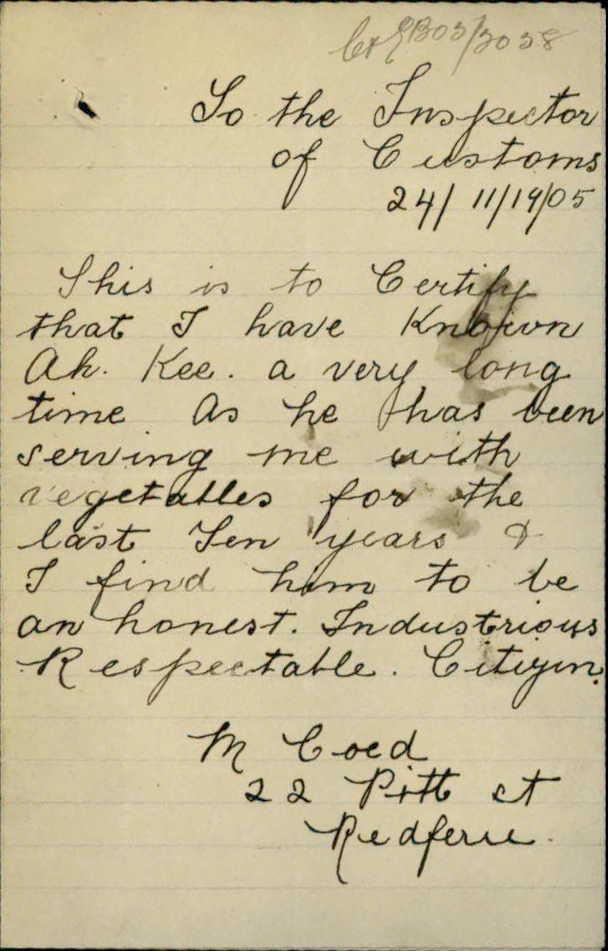 C & E B05/3038
To the Inspector
of Customs
24/11/1905
This is to Certify
that I have Known
Ah. Kee. a very long
time As he has been
serving me with
vegetables for the
last Ten years &
I find him to be
an honest. Industrious
Respectable. Citizen.
M
22 Pitt st
Redfern.